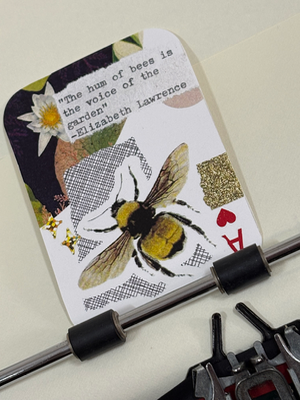 "The hum of bees is
the voice of the
garden"
-Elizabeth Lawrence
A